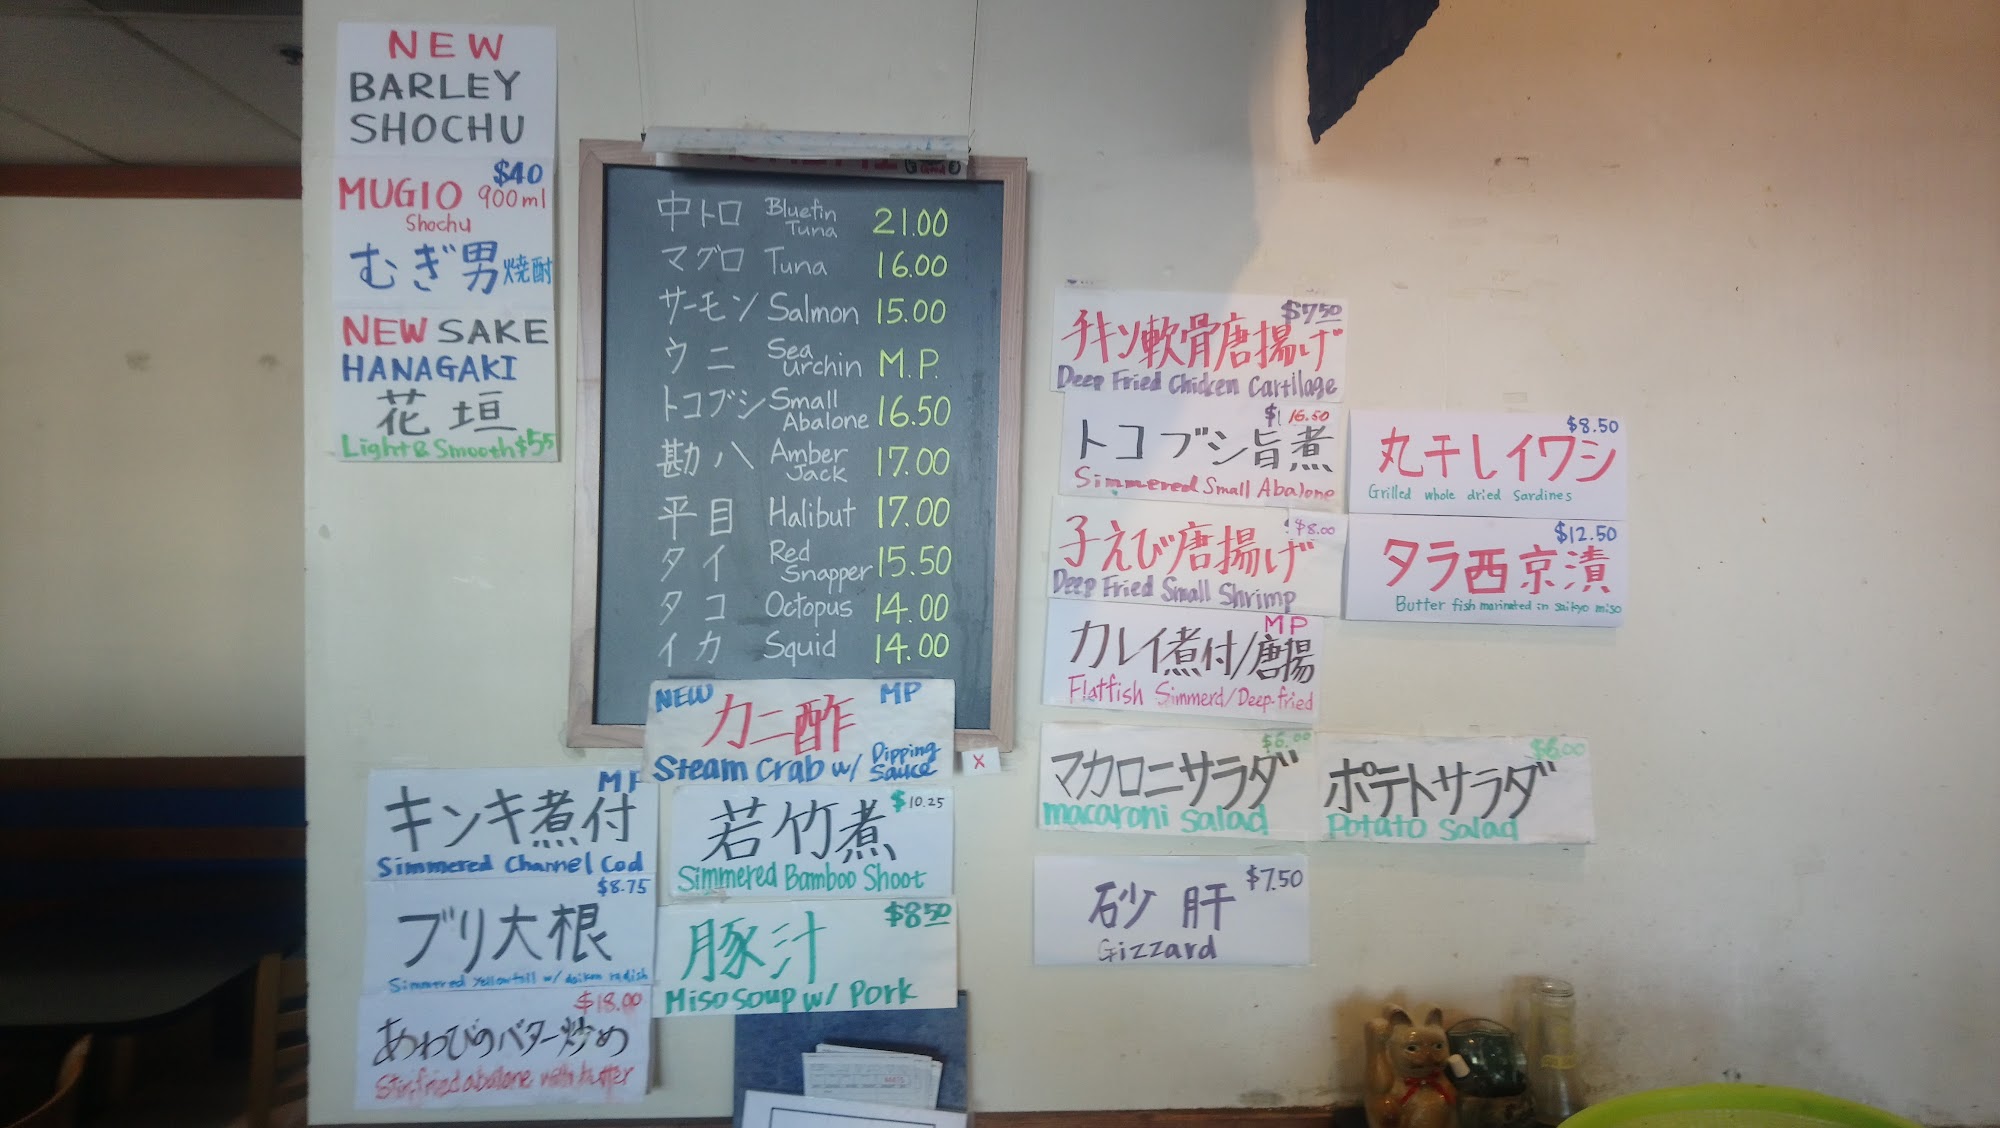 NEW
BARLEY
SHOCHU
$40
MUGIO 900ml
Shochu
むぎ男焼酎
NEW SAKE
HANAGAKI
花垣
Light & Smooth $55
中トロ Bluefin Tuna 21.00
マグロ Tuna 16.00
サーモン Salmon 15.00
ウニ Sea urchin M.P.
トコブシ Small Abalone 16.50
勘八 Amber Jack 17.00
平目 Halibut 17.00
タイ Red Snapper 15.50
タコ Octopus 14.00
イカ Squid 14.00
NEW MP
カニ酢
Steam Crab w/ Dipping Sauce
X
MP
キンキ煮付
Simmered Channel Cod
$8.75
ブリ大根
Simmered Yellowtail w/ daikon radish
$18.00
あわびのバター炒め
Stir fried abalone with butter
$10.25
若竹煮
Simmered Bamboo Shoot
$8.50
豚汁
Miso soup w/ Pork
$7.50
チキン軟骨唐揚げ
Deep Fried Chicken Cartilage
$16.50
トコブシ旨煮
Simmered Small Abalone
$8.00
子えび唐揚げ
Deep Fried Small Shrimp
MP
カレイ煮付/唐揚
Flatfish Simmerd/Deep-fried
$6.00
マカロニサラダ
macaroni salad
$7.50
砂肝
Gizzard
$8.50
丸干しイワシ
Grilled whole dried Sardines
$12.50
タラ西京漬
Butter fish marinated in saikyo miso
$6.00
ポテトサラダ
Potato Salad